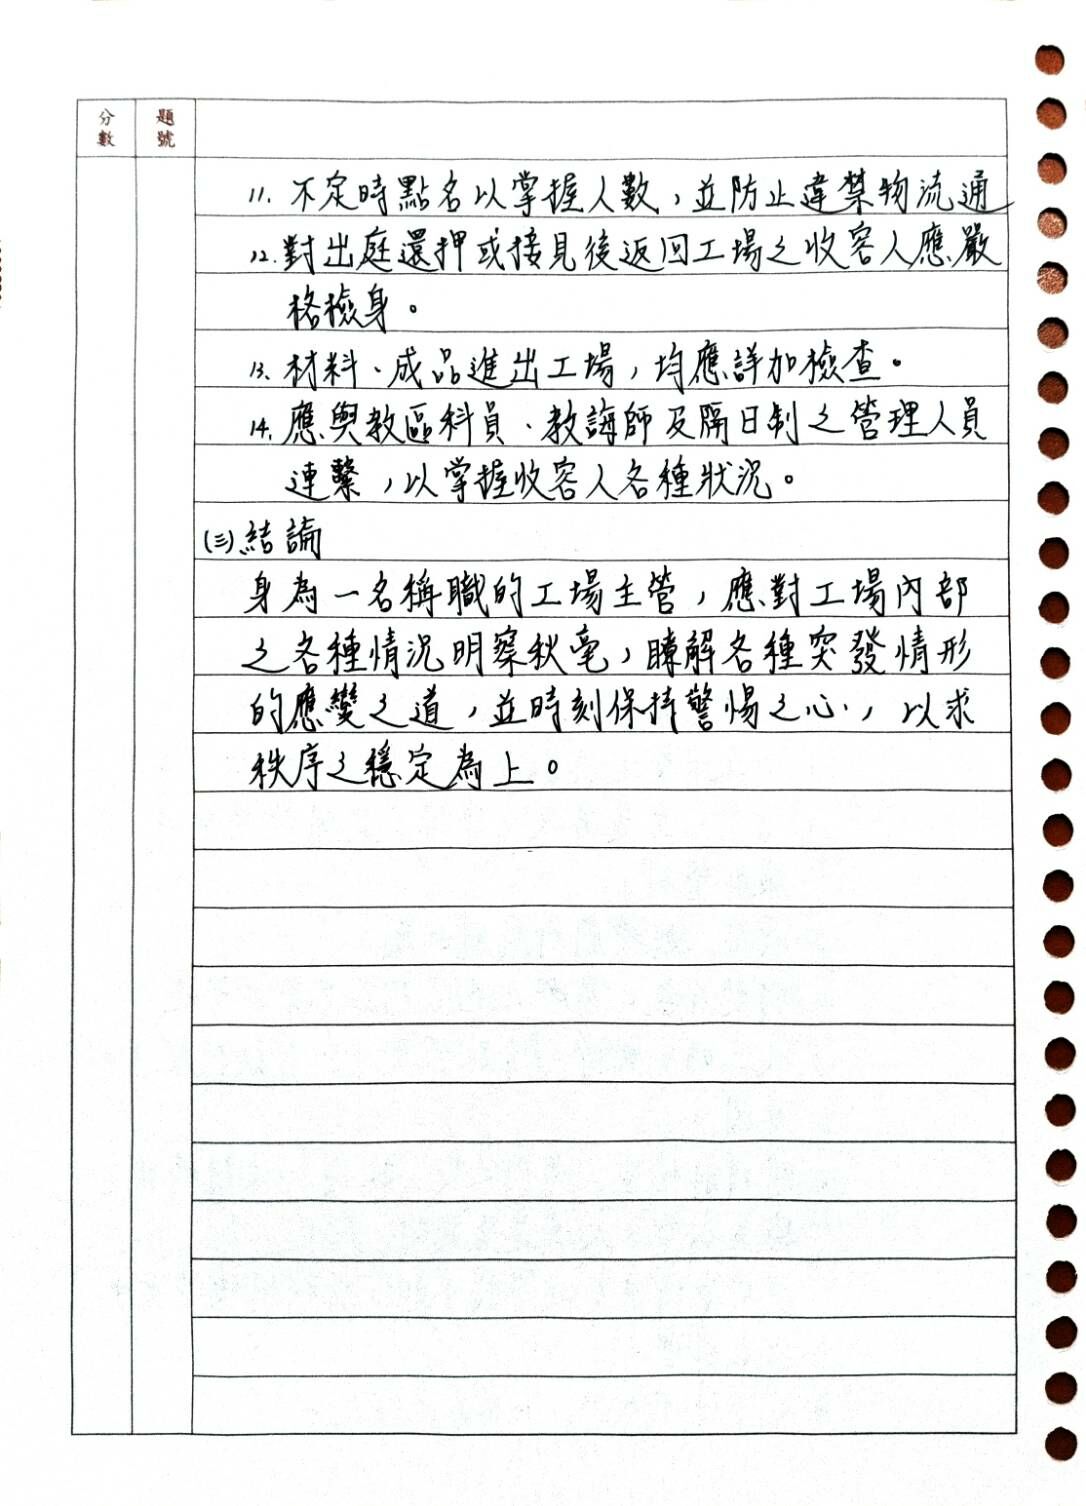 分數 題號
11. 不定時點名以掌握人數，並防止違禁物流通
12. 對出庭還押或接見後返回工場之收容人應嚴
格檢身。
13. 材料、成品進出工場，均應詳加檢查。
14. 應與教區科員、教誨師及隔日制之管理人員
連繫，以掌握收容人各種狀況。
(三) 結論
身為一名稱職的工場主管，應對工場內部
之各種情況明察秋毫，瞭解各種突發情形
的應變之道，並時刻保持警惕之心，以求
秩序之穩定為上。